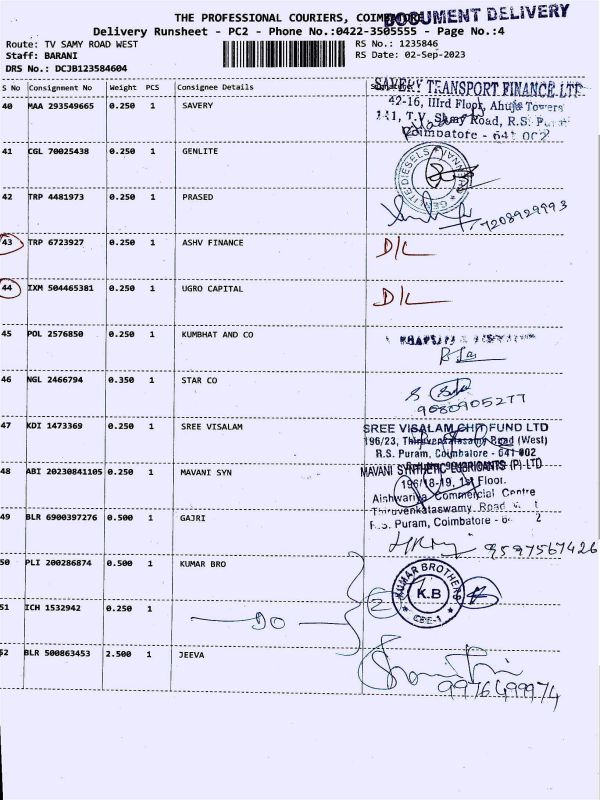 THE PROFESSIONAL COURIERS, COIMBATORE
DOCUMENT DELIVERY
Delivery Runsheet - PC2 - Phone No.:0422-3505555 - Page No.:4
Route: TV SAMY ROAD WEST
RS No.: 1235846
Staff: BARANI
RS Date: 02-Sep-2023
DRS No.: DCJB123584604
S No Consignment No Weight PCS Consignee Details
40 MAA 293549665 0.250 1 SAVERY
SAVERY TRANSPORT FINANCE LTD
42-16, IIIrd Floor, Ahuja Towers
141, T.V. Samy Road, R.S. Pu
Coimbatore - 641 002
41 CGL 70025438 0.250 1 GENLITE
42 TRP 4481973 0.250 1 PRASED
7208929993
43 TRP 6723927 0.250 1 ASHV FINANCE D/L
44 IXM 504465381 0.250 1 UGRO CAPITAL D/L
45 POL 2576850 0.250 1 KUMBHAT AND CO
46 NGL 2466794 0.350 1 STAR CO
9080905277
47 KDI 1473369 0.250 1 SREE VISALAM
SREE VISALAM CHIT FUND LTD
196/23, Thiruvenkatasamy Road (West)
R.S. Puram, Coimbatore - 641 002
48 ABI 20230841105 0.250 1 MAVANI SYN
MAVANI SYNTHETIC LUBRICANTS (P) LTD
196/18-19, 1st Floor.
Aishwariya Commercial Centre
Thiruvenkataswamy Road
R.S. Puram, Coimbatore - 64 2
49 BLR 6900397276 0.500 1 GAJRI
9597567426
50 PLI 200286874 0.500 1 KUMAR BRO
KUMAR BROTHERS
K.B
CBE-1
51 ICH 1532942 0.250 1
DO
52 BLR 500863453 2.500 1 JEEVA
9976499974